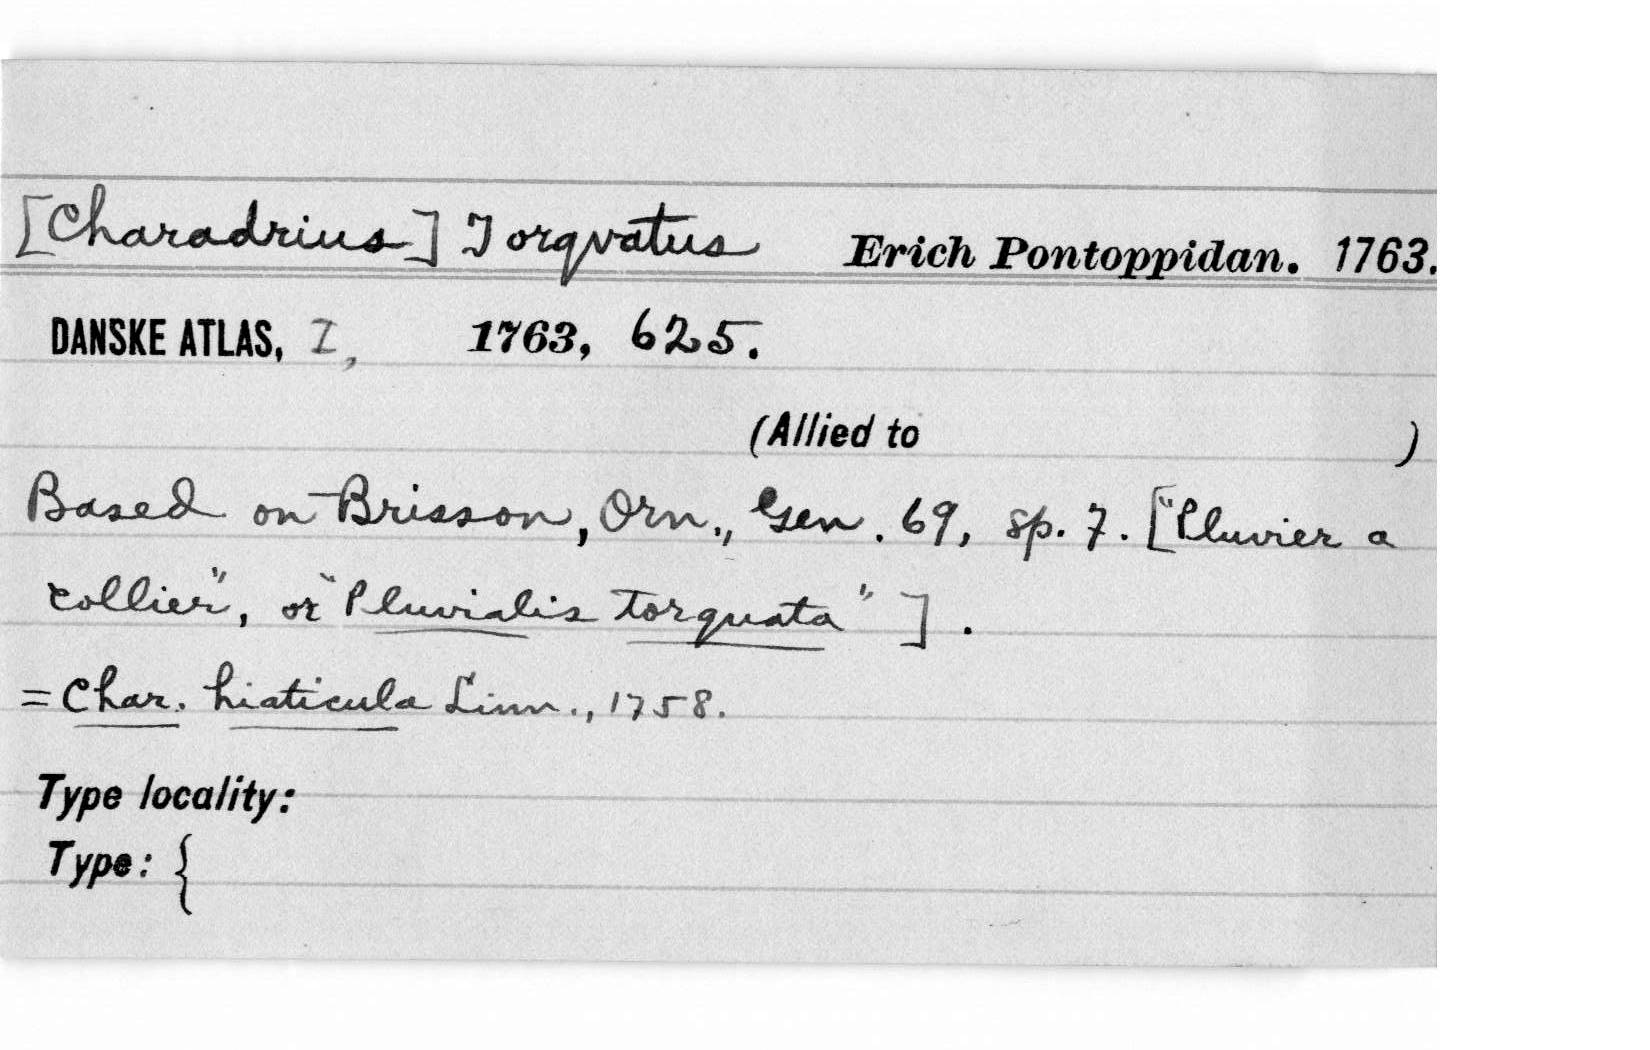 [Charadrius] Torqvatus Erich Pontoppidan. 1763.
DANSKE ATLAS, I, 1763, 625.
(Allied to )
Based on Brisson, Orn., Gen. 69, sp. 7. ["Pluvier a
collier", or "Pluvialis torquata"].
= Char. hiaticula Linn., 1758.
Type locality:
Type: {